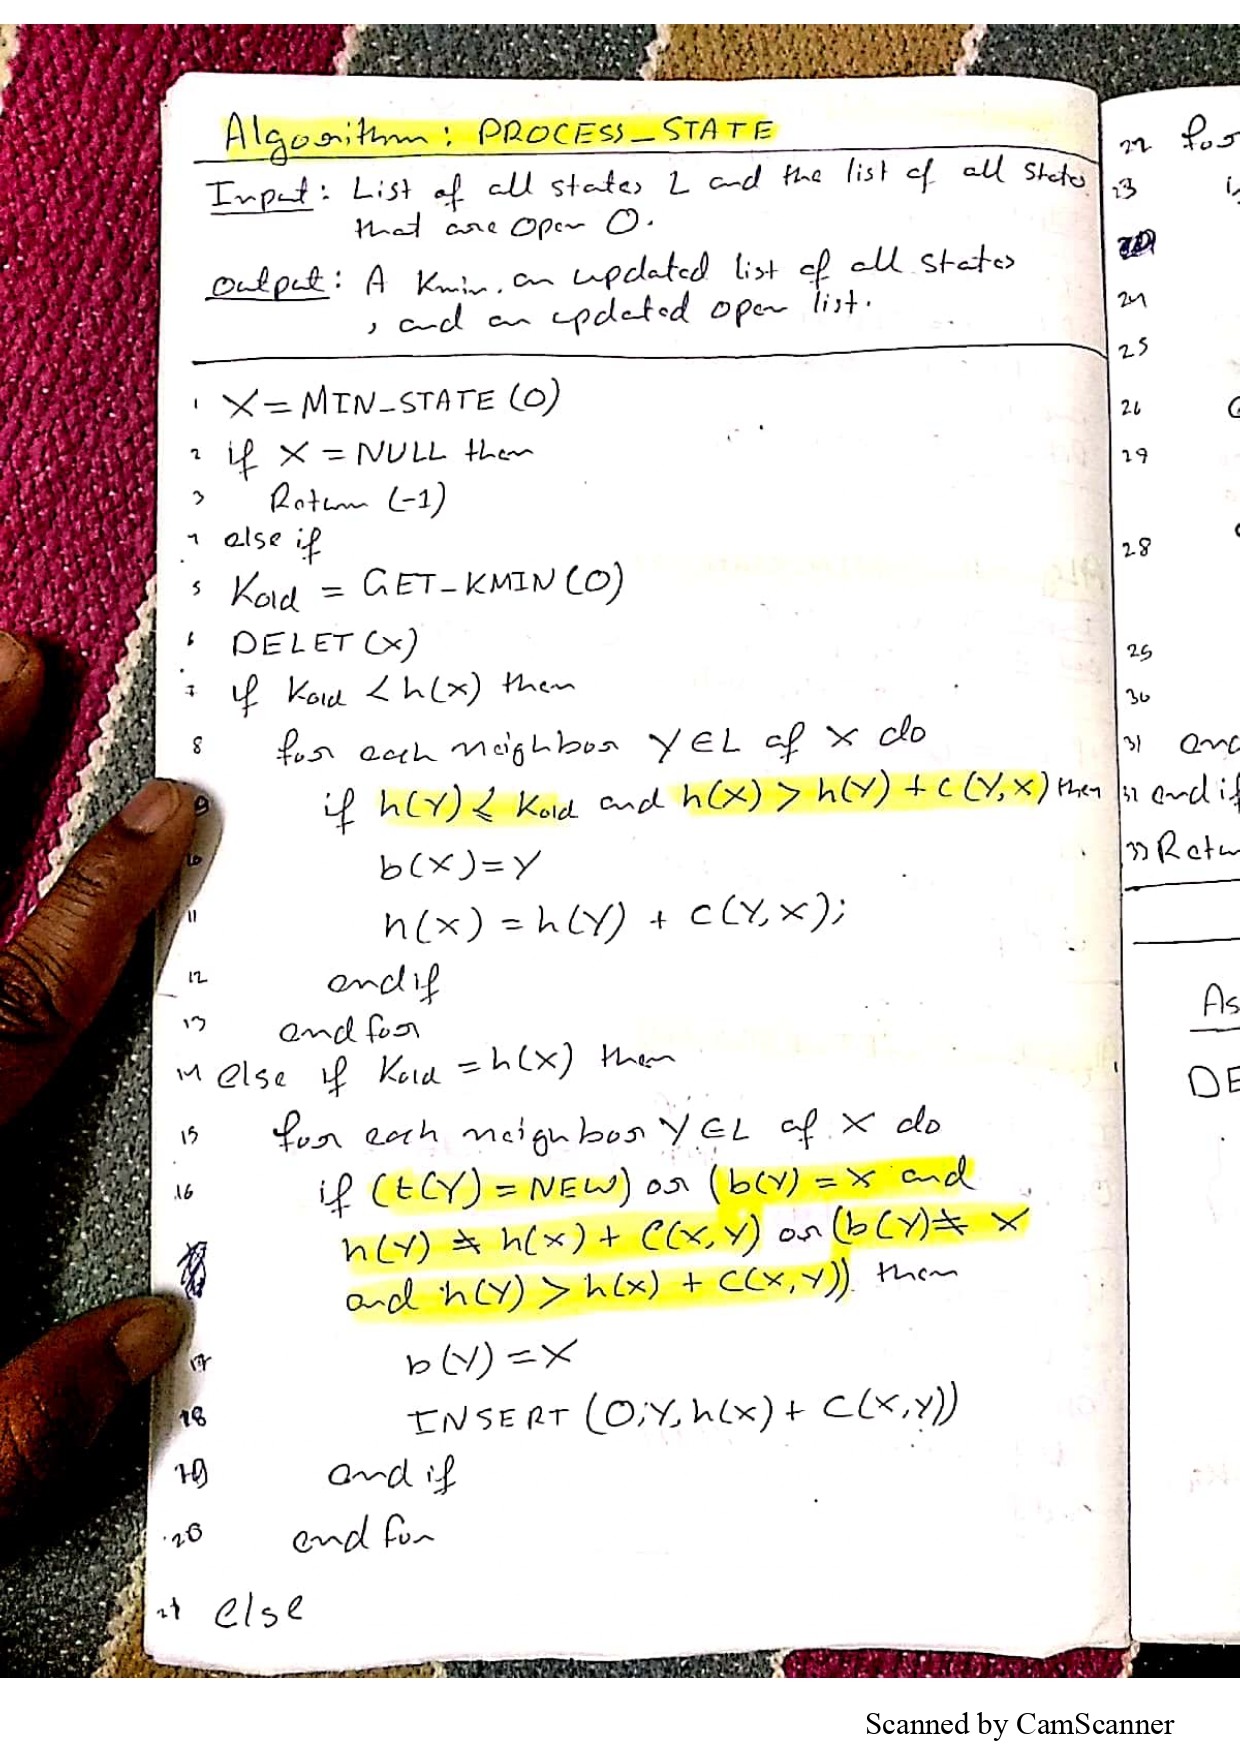 Algorithm: PROCESS_STATE
Input: List of all states L and the list of all states
that are open O.
output: A Kmin, an updated list of all states
, and an updated open list.
1 X = MIN_STATE (O)
2 if X = NULL then
3 Return (-1)
4 else if
5 Kold = GET-KMIN (O)
6 DELET (x)
7 if Kold < h(x) then
8 for each neighbor Y ∈ L of X do
9 if h(Y) ≤ Kold and h(X) > h(Y) + c(Y,X) then
10 b(X) = Y
11 h(x) = h(Y) + c(Y,X);
12 endif
13 endfor
14 else if Kold = h(X) then
15 for each neighbor Y ∈ L of X do
16 if (t(Y) = NEW) or (b(Y) = X and
h(Y) ≠ h(x) + C(X,Y) or (b(Y) ≠ X
and h(Y) > h(x) + C(X,Y)) then
17 b(Y) = X
18 INSERT (O,Y, h(x) + C(X,Y))
19 end if
20 end for
21 else
22 for
23
24
25
26
29
28
29
30
31 end
32 end if
33 Retu
As
DE
Scanned by CamScanner